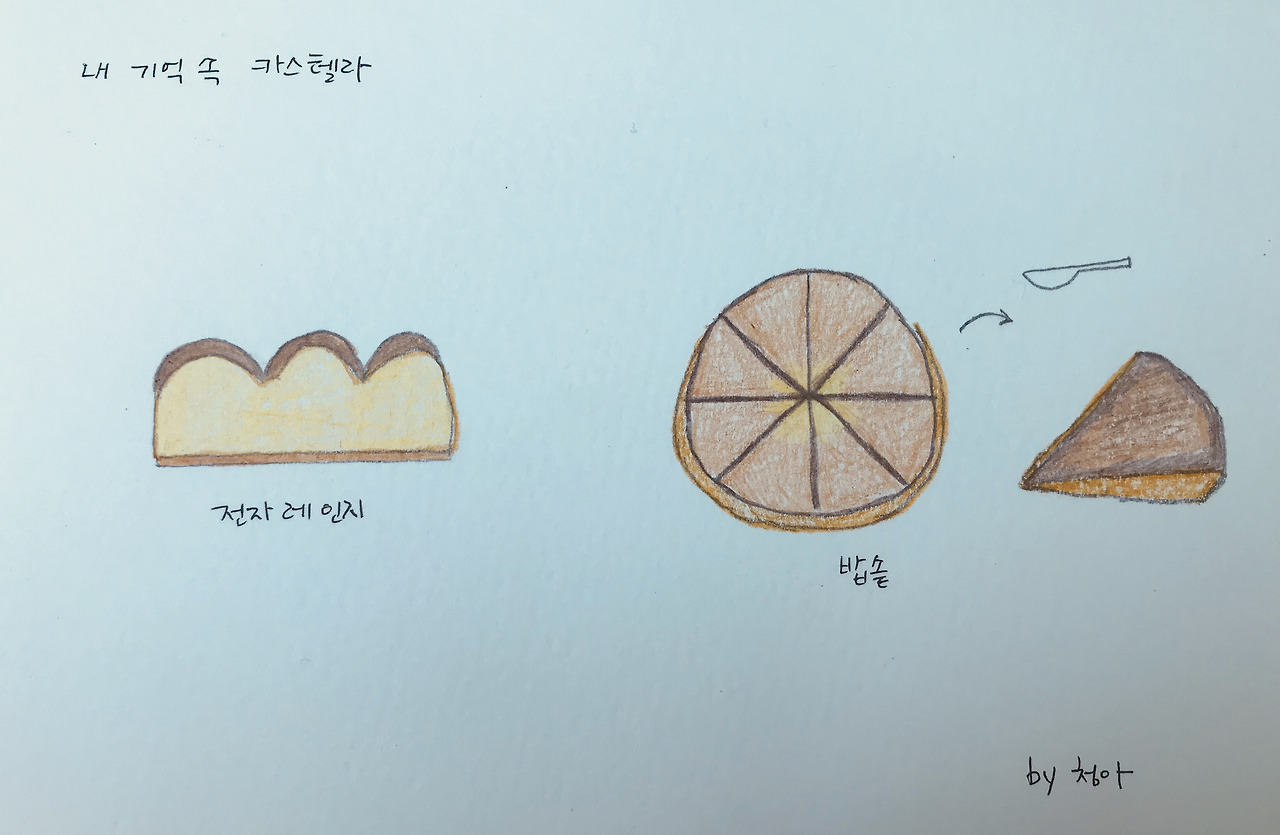 내 기억 속 카스텔라
전자레인지
밥솥
by 청아